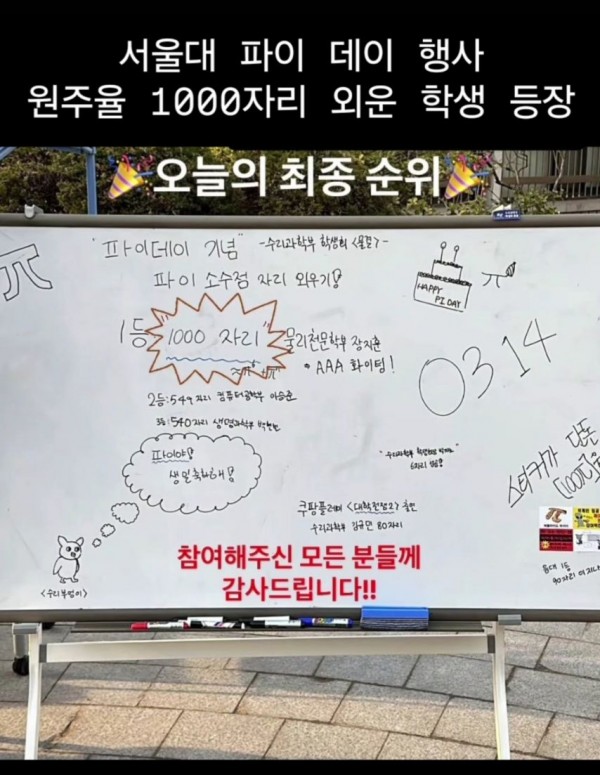 서울대 파이 데이 행사
원주율 1000자리 외운 학생 등장
🎉오늘의 최종 순위🎉
"파이데이 기념" -수리과학부 학생회 <몰결>-
파이 소수점 자리 외우기!
1등 "1000 자리" 물리천문학부 장지훈
• AAA 화이팅!
2등:549 자리 컴퓨터공학부 이승준
3등:540자리 생명과학부
파이야!
생일축하해!
<수리부엉이>
HAPPY
PI DAY
π
0314
"수리과학부 학생회
6자리
스타카까 다돈
쿠팡플레이 <대학전쟁2> 출연
수리과학부 김규민 80자리
음대 1등
90자리
참여해주신 모든 분들께
감사드립니다!!